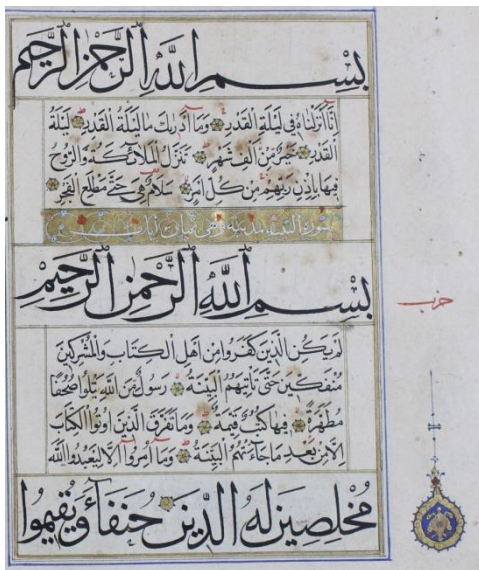 بِسْمِ اللَّهِ الرَّحْمٰنِ الرَّحِيمِ
اِنَّا اَنْزَلْنَاهُ فِي لَيْلَةِ الْقَدْرِ وَمَا اَدْرٰيكَ مَا لَيْلَةُ الْقَدْرِ لَيْلَةُ
الْقَدْرِ خَيْرٌ مِنْ اَلْفِ شَهْرٍ تَنَزَّلُ الْمَلَائِكَةُ وَالرُّوحُ
فِيهَا بِاِذْنِ رَبِّهِمْ مِنْ كُلِّ اَمْرٍ سَلَامٌ هِيَ حَتّٰى مَطْلَعِ الْفَجْرِ
سورة مدنية وهي ثمان آيات
بِسْمِ اللَّهِ الرَّحْمٰنِ الرَّحِيمِ
لَمْ يَكُنِ الَّذِينَ كَفَرُوا مِنْ اَهْلِ الْكِتَابِ وَالْمُشْرِكِينَ
مُنْفَكِّينَ حَتّٰى تَأْتِيَهُمُ الْبَيِّنَةُ رَسُولٌ مِنَ اللَّهِ يَتْلُوا صُحُفًا
مُطَهَّرَةً فِيهَا كُتُبٌ قَيِّمَةٌ وَمَا تَفَرَّقَ الَّذِينَ اُوتُوا الْكِتَابَ
اِلَّا مِنْ بَعْدِ مَا جَاءَتْهُمُ الْبَيِّنَةُ وَمَا اُمِرُوا اِلَّا لِيَعْبُدُوا اللَّهَ
مُخْلِصِينَ لَهُ الدِّينَ حُنَفَاءَ وَيُقِيمُوا
حزب